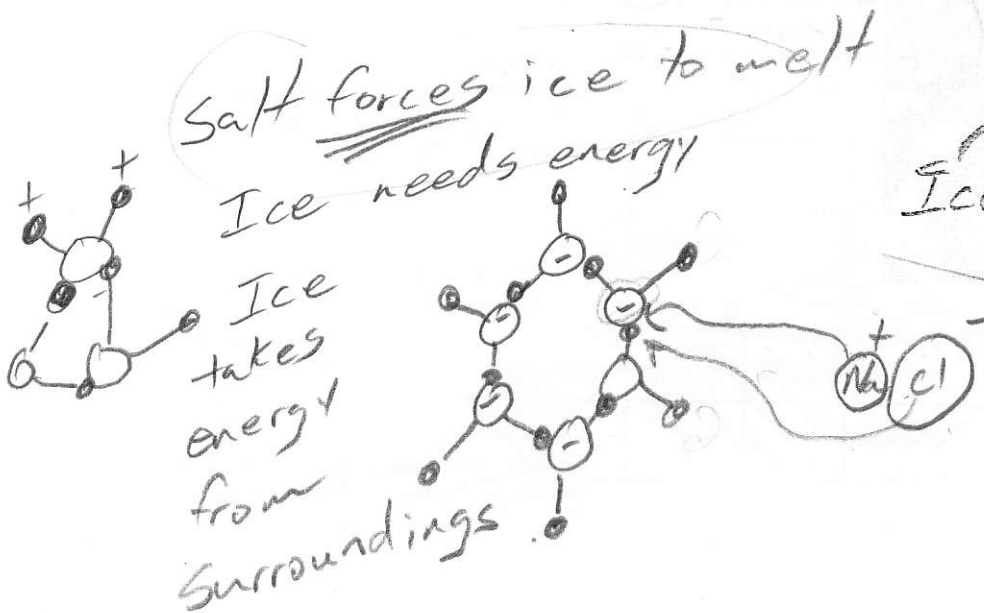 Salt forces ice to melt
Ice needs energy
Ice
takes
energy
from
surroundings
+ +
- - - - - -
+ -
Na Cl